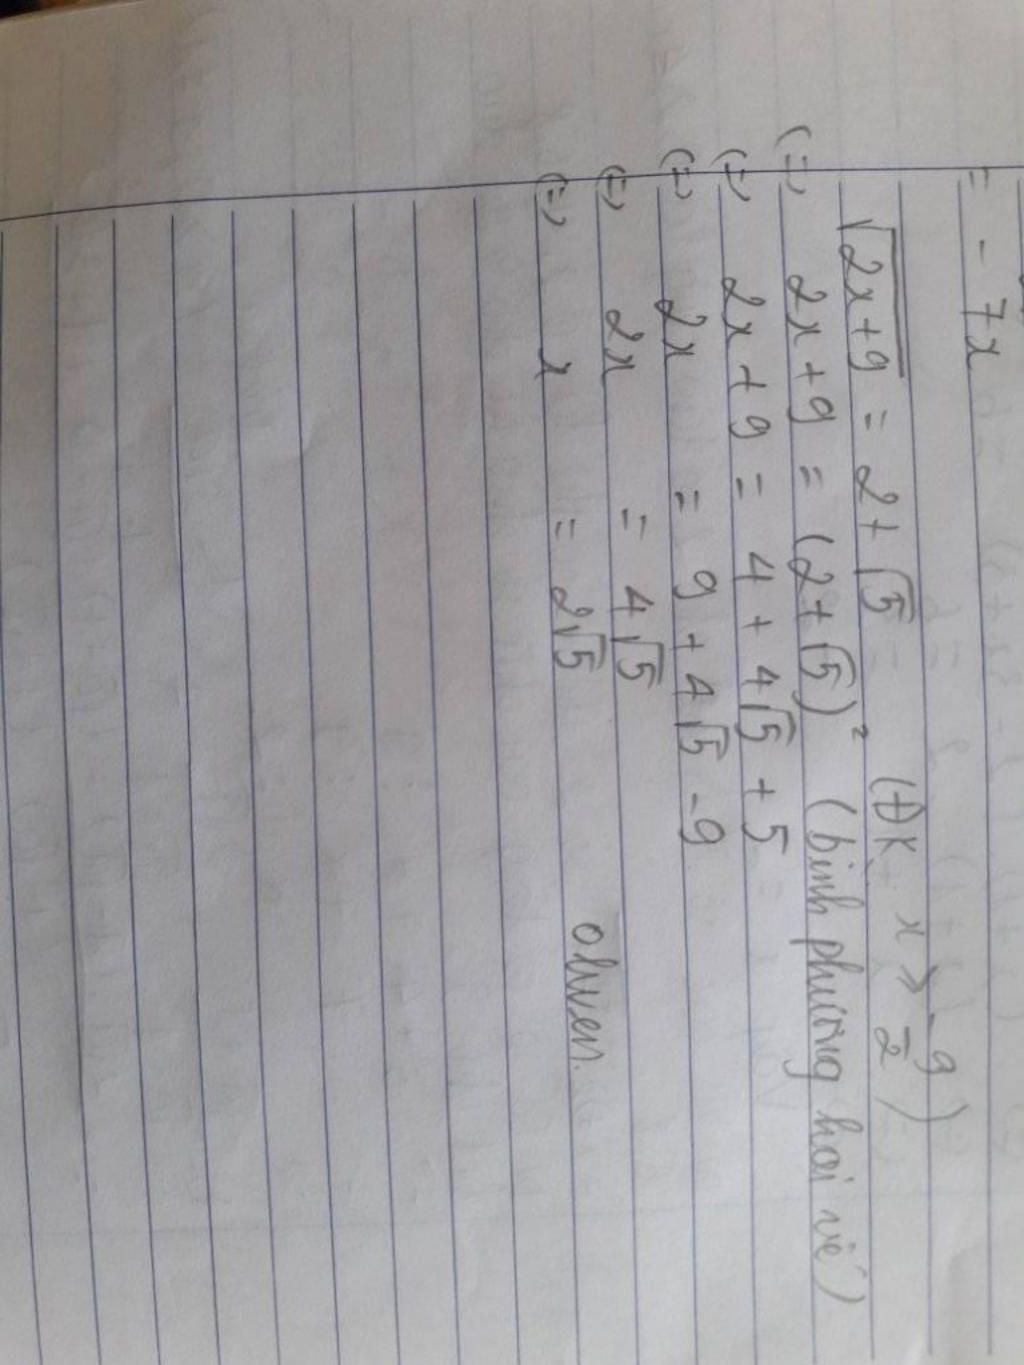 = - 7x
√2x+9 = 2+√5 (ĐK: x > -9/2)
(=) 2x+9 = (2+√5)² (bình phương hai vế)
(=) 2x+9 = 4 + 4√5 + 5
(=) 2x = 9 + 4√5 - 9
(=) 2x = 4√5
(=) x = 2√5